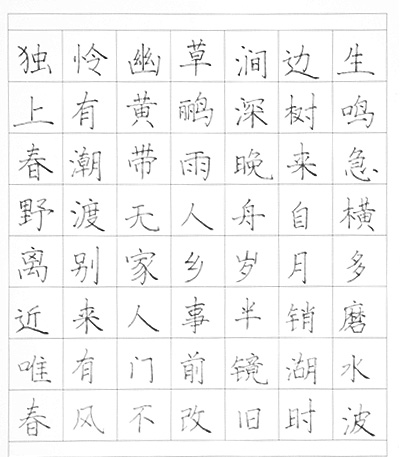 独怜幽草涧边生
上有黄鹂深树鸣
春潮带雨晚来急
野渡无人舟自横
离别家乡岁月多
近来人事半销磨
唯有门前镜湖水
春风不改旧时波